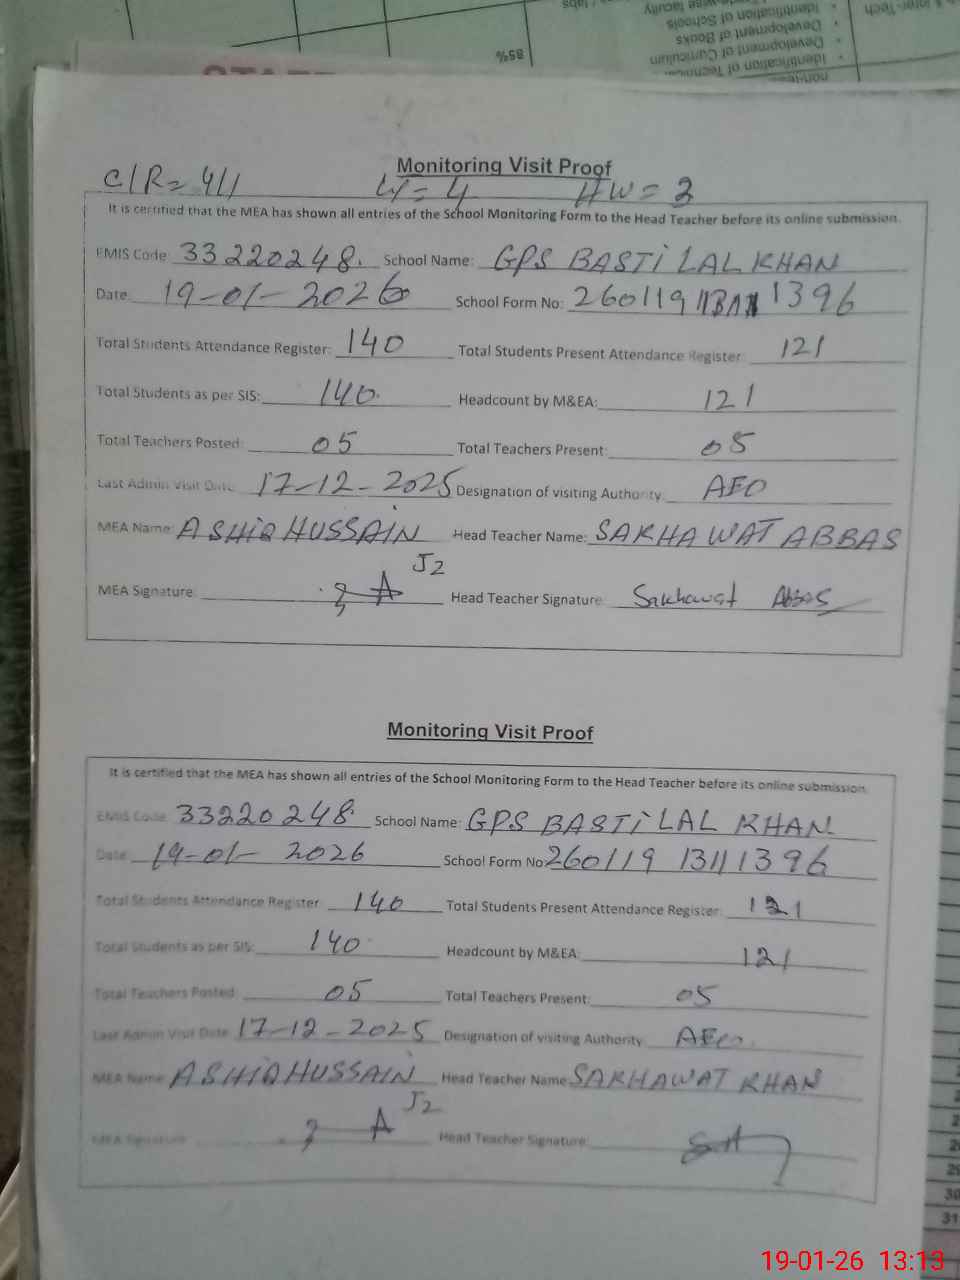 85%
Identification of Schools
Development of Books
Development of Curriculum
Identification of Technical
Monitoring Visit Proof
C/R = 4/1 W = 4 HW = 3
It is certified that the MEA has shown all entries of the School Monitoring Form to the Head Teacher before its online submission.
EMIS Code: 33220248. School Name: GPS BASTI LAL KHAN
Date: 19-01-2026 School Form No: 260119 1396
Total Students Attendance Register: 140 Total Students Present Attendance Register: 121
Total Students as per SIS: 140 Headcount by M&EA: 121
Total Teachers Posted: 05 Total Teachers Present: 05
Last Admin Visit Date: 17-12-2025 Designation of visiting Authority: AEO
MEA Name: ASHIQ HUSSAIN Head Teacher Name: SAKHAWAT ABBAS
J2
MEA Signature: Head Teacher Signature: Sakhawat Abbas
Monitoring Visit Proof
It is certified that the MEA has shown all entries of the School Monitoring Form to the Head Teacher before its online submission.
EMIS Code: 33220248 School Name: GPS BASTI LAL KHAN
Date: 19-01-2026 School Form No: 260119 13111396
Total Students Attendance Register: 140 Total Students Present Attendance Register: 121
Total Students as per SIS: 140 Headcount by M&EA: 121
Total Teachers Posted: 05 Total Teachers Present: 05
Last Admin Visit Date: 17-12-2025 Designation of visiting Authority: AEO
MEA Name: ASHIQ HUSSAIN Head Teacher Name: SAKHAWAT KHAN
J2
MEA Signature: Head Teacher Signature:
29
30
31
19-01-26 13:13